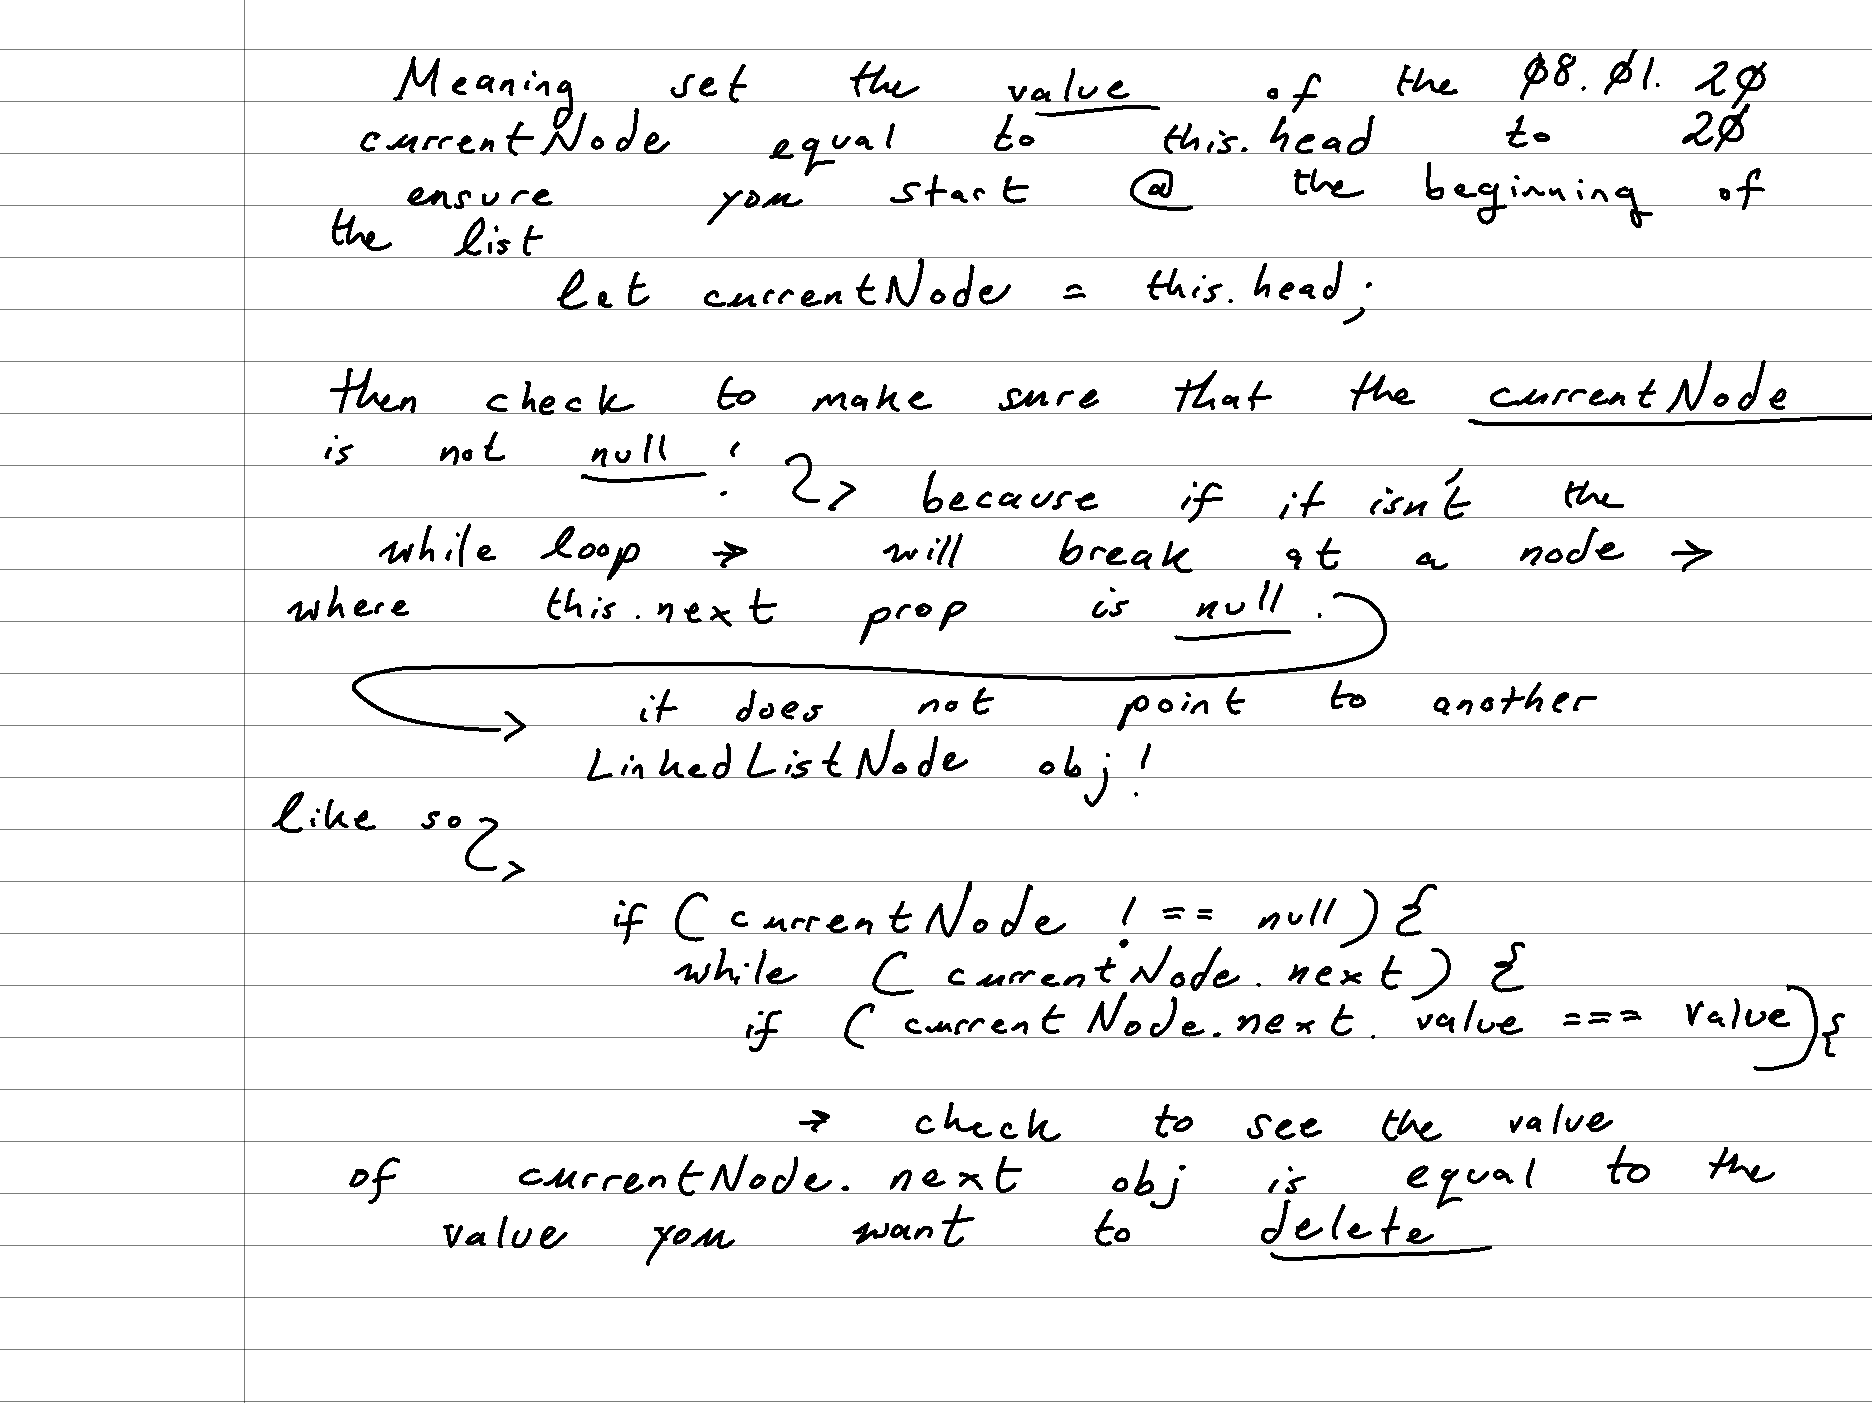 Meaning set the value of the 08.01.20
currentNode equal to this.head to 20
ensure you start @ the beginning of
the list
let currentNode = this.head;
then check to make sure that the currentNode
is not null!
because if it isn't the
while loop → will break at a node →
where this.next prop is null.
it does not point to another
LinkedListNode obj!
like so
if (currentNode !== null) {
while (currentNode.next) {
if (currentNode.next.value === value) {
→ check to see the value
of currentNode.next obj is equal to the
value you want to delete